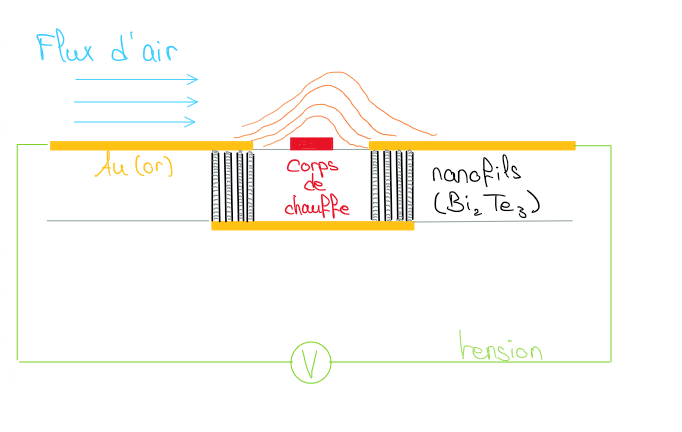 Flux d'air
Au (or)
Corps
de
chauffe
nanofils
(Bi₂ Te₃)
V
tension